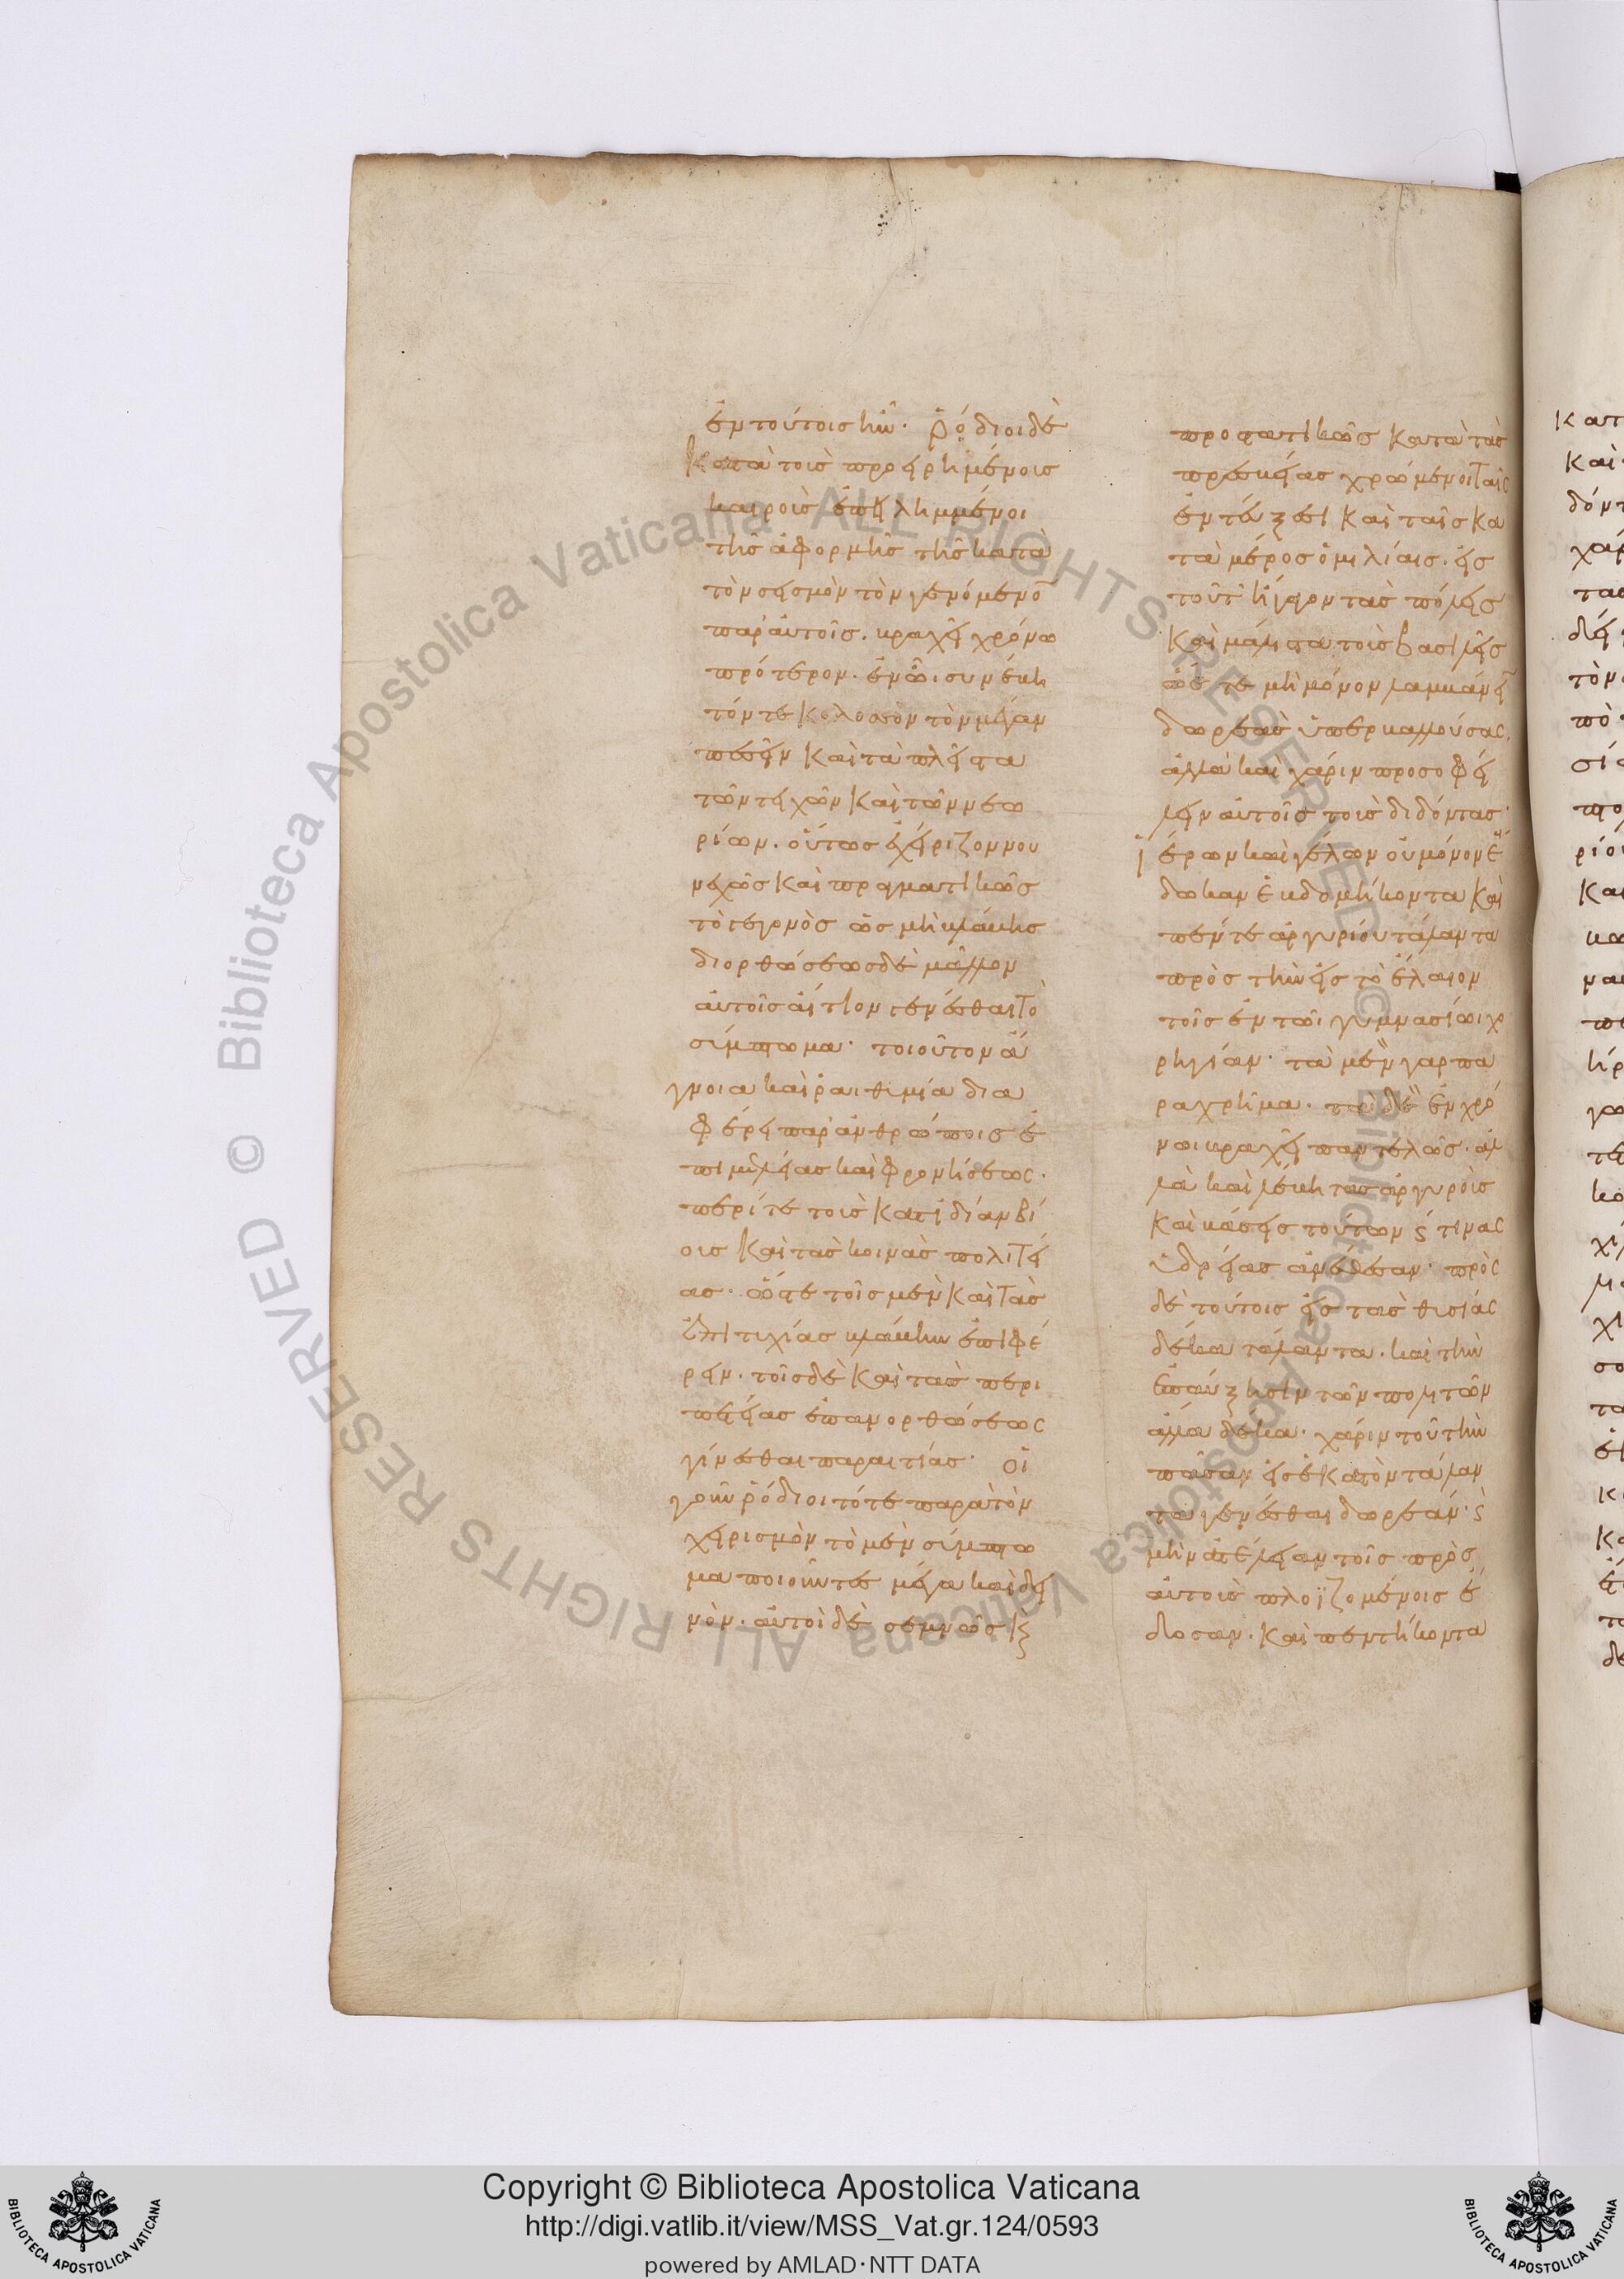 ἐν τούτοις ἦν. Ῥόδιοι δὲ
κατὰ τοὺς προειρημένους
καιροὺς ἐπειλημμένοι
τῆς ἀφορμῆς τῆς κατὰ
τὸν σεισμὸν τὸν γενόμενον
παρ' αὐτοῖς. βραχεῖ χρόνω
πρότερον. ἐν ὧι συνέβη
τόν τε κολοσσὸν τὸν μέγαν
πεσεῖν καὶ τὰ πλεῖστα
τῶν τειχῶν καὶ τῶν νεω
ρίων. οὕτως ἐχείριζον νου
νεχῶς καὶ πραγματικῶς
τὸ γεγονὸς ὡς μὴ βλάβης
διορθώσεως δὲ μᾶλλον
αὐτοῖς αἴτιον γενέσθαι τὸ
σύμπτωμα. τοσοῦτον ἄ
γνοια καὶ ῥαιθυμία δια
φέρει παρ' ἀνθρώποις ἐ
πιμελείας καὶ φρονήσεως.
περί τε τοὺς κατ' ἰδίαν βί
ους καὶ τὰς κοινὰς πολιτεί
ας. ὥστε τοῖς μὲν καὶ τὰς
ἐπιτυχίας βλάβην ἐπιφέ
ρειν. τοῖς δὲ καὶ τὰς περι
πετείας ἐπανορθώσεως
γίνεσθαι παραιτίας. οἱ
γοῦν ῥόδιοι τότε παρὰ τὸν
χειρισμὸν τὸ μὲν σύμπτω
μα ποιοῦντες μέγα καὶ δει
νὸν. αὐτοὶ δὲ σεμνῶς κ
προστατικῶς κατὰ τὰς
πρεσβείας χρώμενοι ταῖς
ἐντεύξεσι καὶ ταῖς κα
τὰ μέρος ὁμιλίαις. εἰς
τοῦτ' ἤγαγον τὰς πόλεις
καὶ μάλιστα τοὺς βασιλεῖς
ὥστε μὴ μόνον λαμβάνειν
δωρεὰς ὑπερβαλλούσας.
ἀλλὰ καὶ χάριν προσοφεί
λειν αὐτοῖς τοὺς διδόντας.
ἱέρων καὶ γέλων οὐ μόνον ἔ
δωκαν ἑβδομήκοντα καὶ
πέντε ἀργυρίου τάλαντα
πρὸς τὴν εἰς τὸ ἔλαιον
τοῖς ἐν τῶι γυμνασίωι χο
ρηγίαν. τὰ μὲν γὰρ πα
ραχρῆμα. τὰ δὲ ἐν χρό
νωι βραχεῖ παντελῶς. ἀλ
λὰ καὶ λέβητας ἀργυροῦς
καὶ βάσεις τούτων κ τινας
ὑδρείας ἀνέθεσαν. πρὸς
δὲ τούτοις εἰς τὰς θυσίας
δέκα τάλαντα. καὶ τὴν
ἐπαύξησιν τῶν πολιτῶν
ἄλλα δέκα. χάριν τοῦ τὴν
πᾶσαν εἰς ἑκατὸν τάλαν
τα γενέσθαι δωρεάν. κ
μὴν ἀτέλειαν τοῖς πρὸς
αὐτοὺς πλοϊζομένοις ἔ
δοσαν. καὶ πεντήκοντα